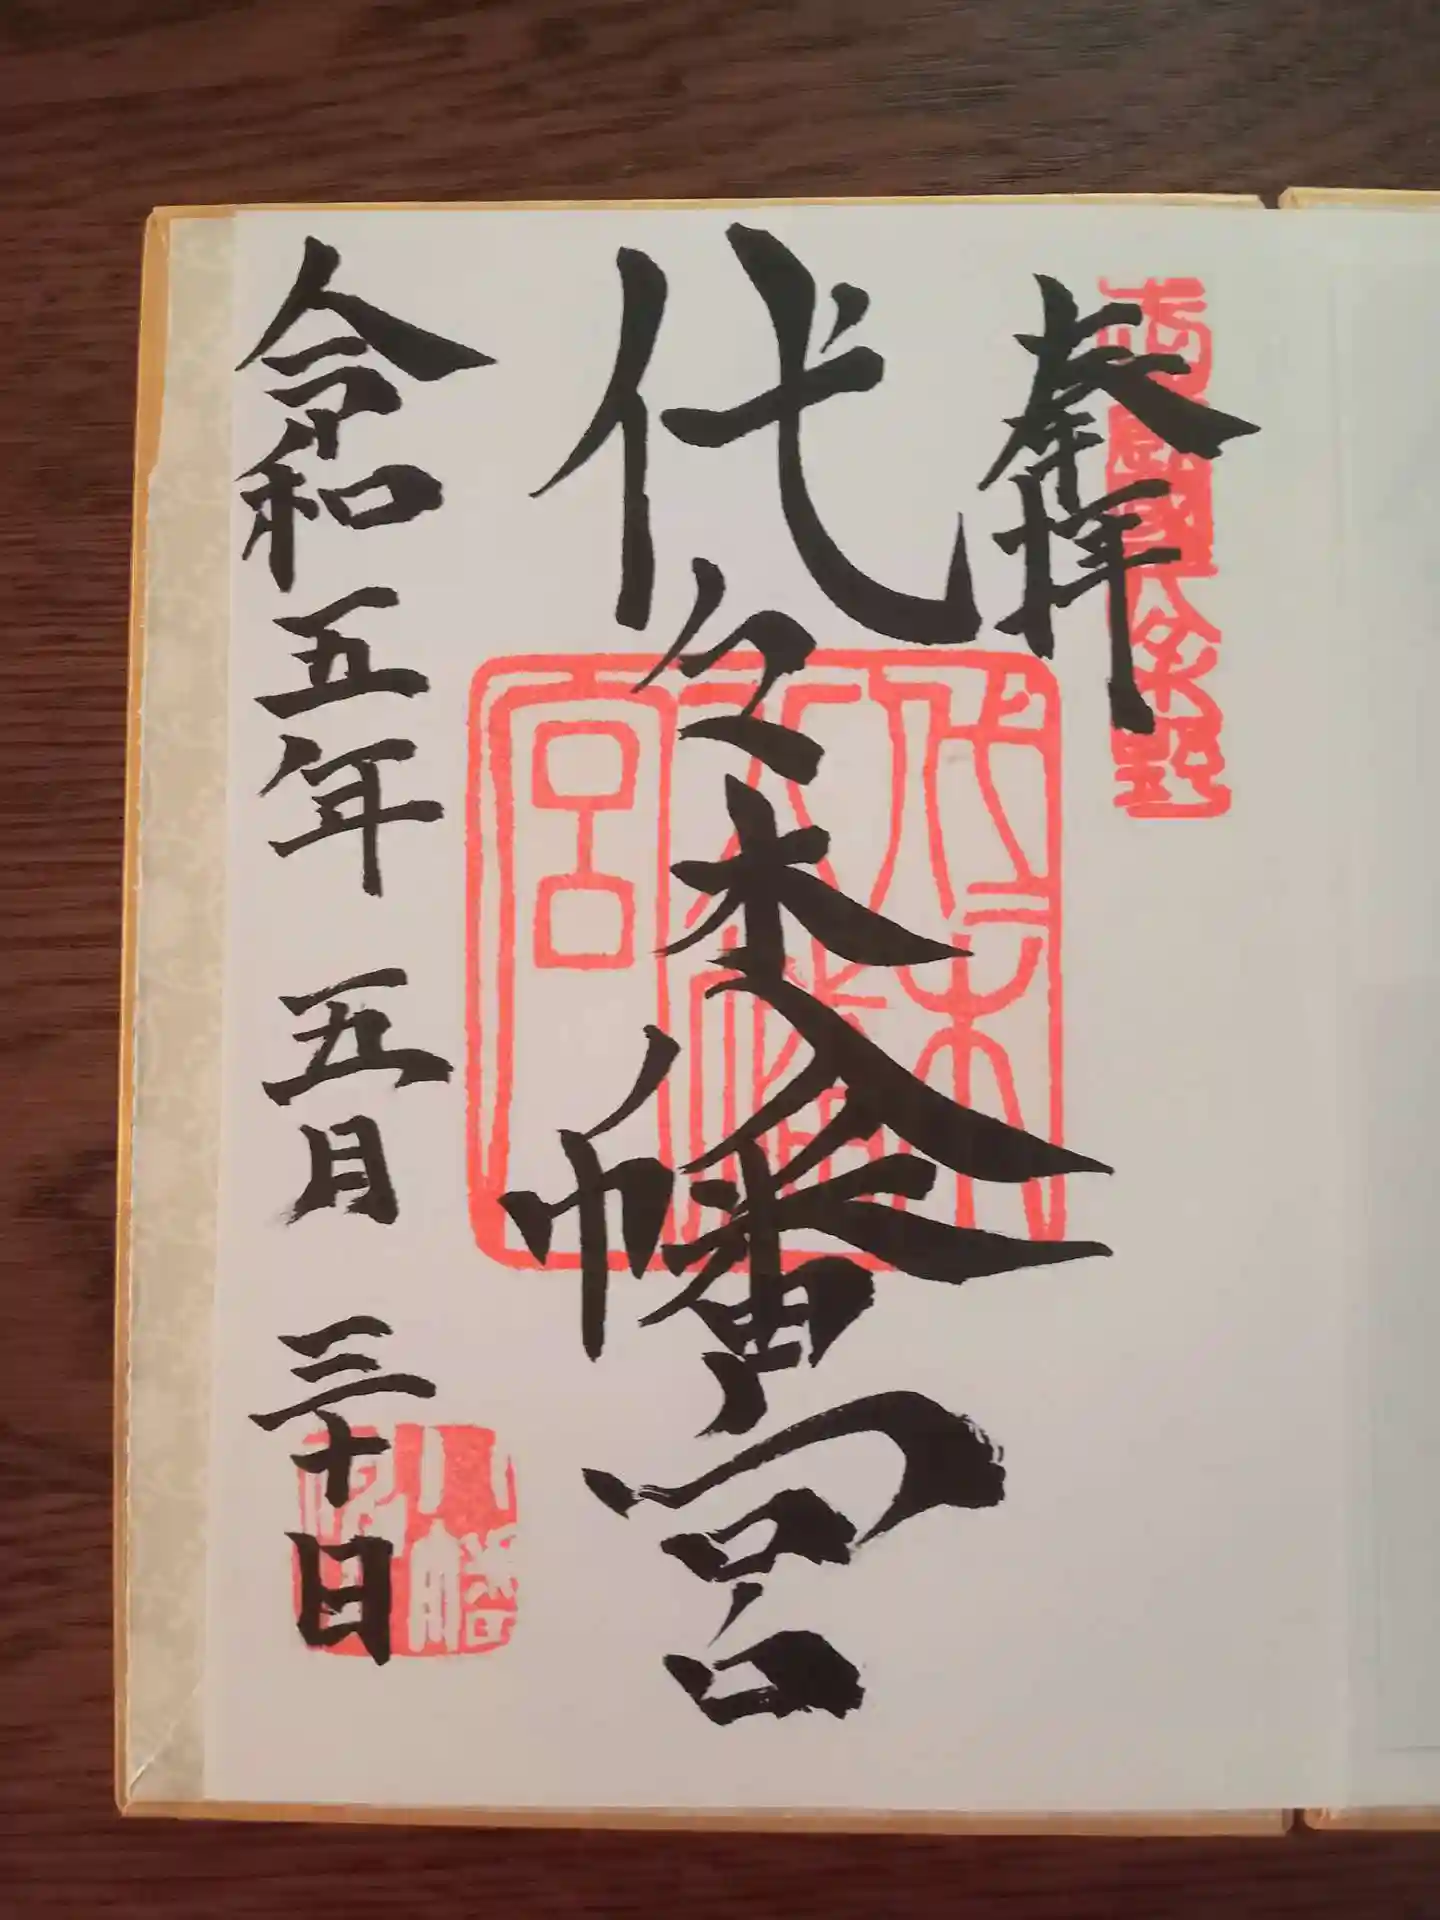 奉拝
代々木八幡宮
令和五年 五月 三十日
代々木
八幡
宮
八幡